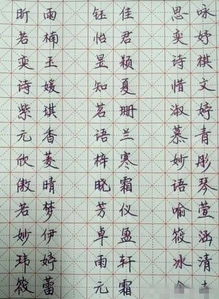 昕雨 钰佳 思咏
若楠 怡君 奕妤
奕玉 昱颖 诗棋
诗媛 知夏 惜文
紫琪 茗珊 淑婷
元香 语兰 慕青
欣菱 梓寒 妙彤
傲晴 晓霜 语琴
若梦 芳仪 喻萱
妙伊 卓盈 筱涵
玮婷 雨轩 冰清
筱蕾 元霜